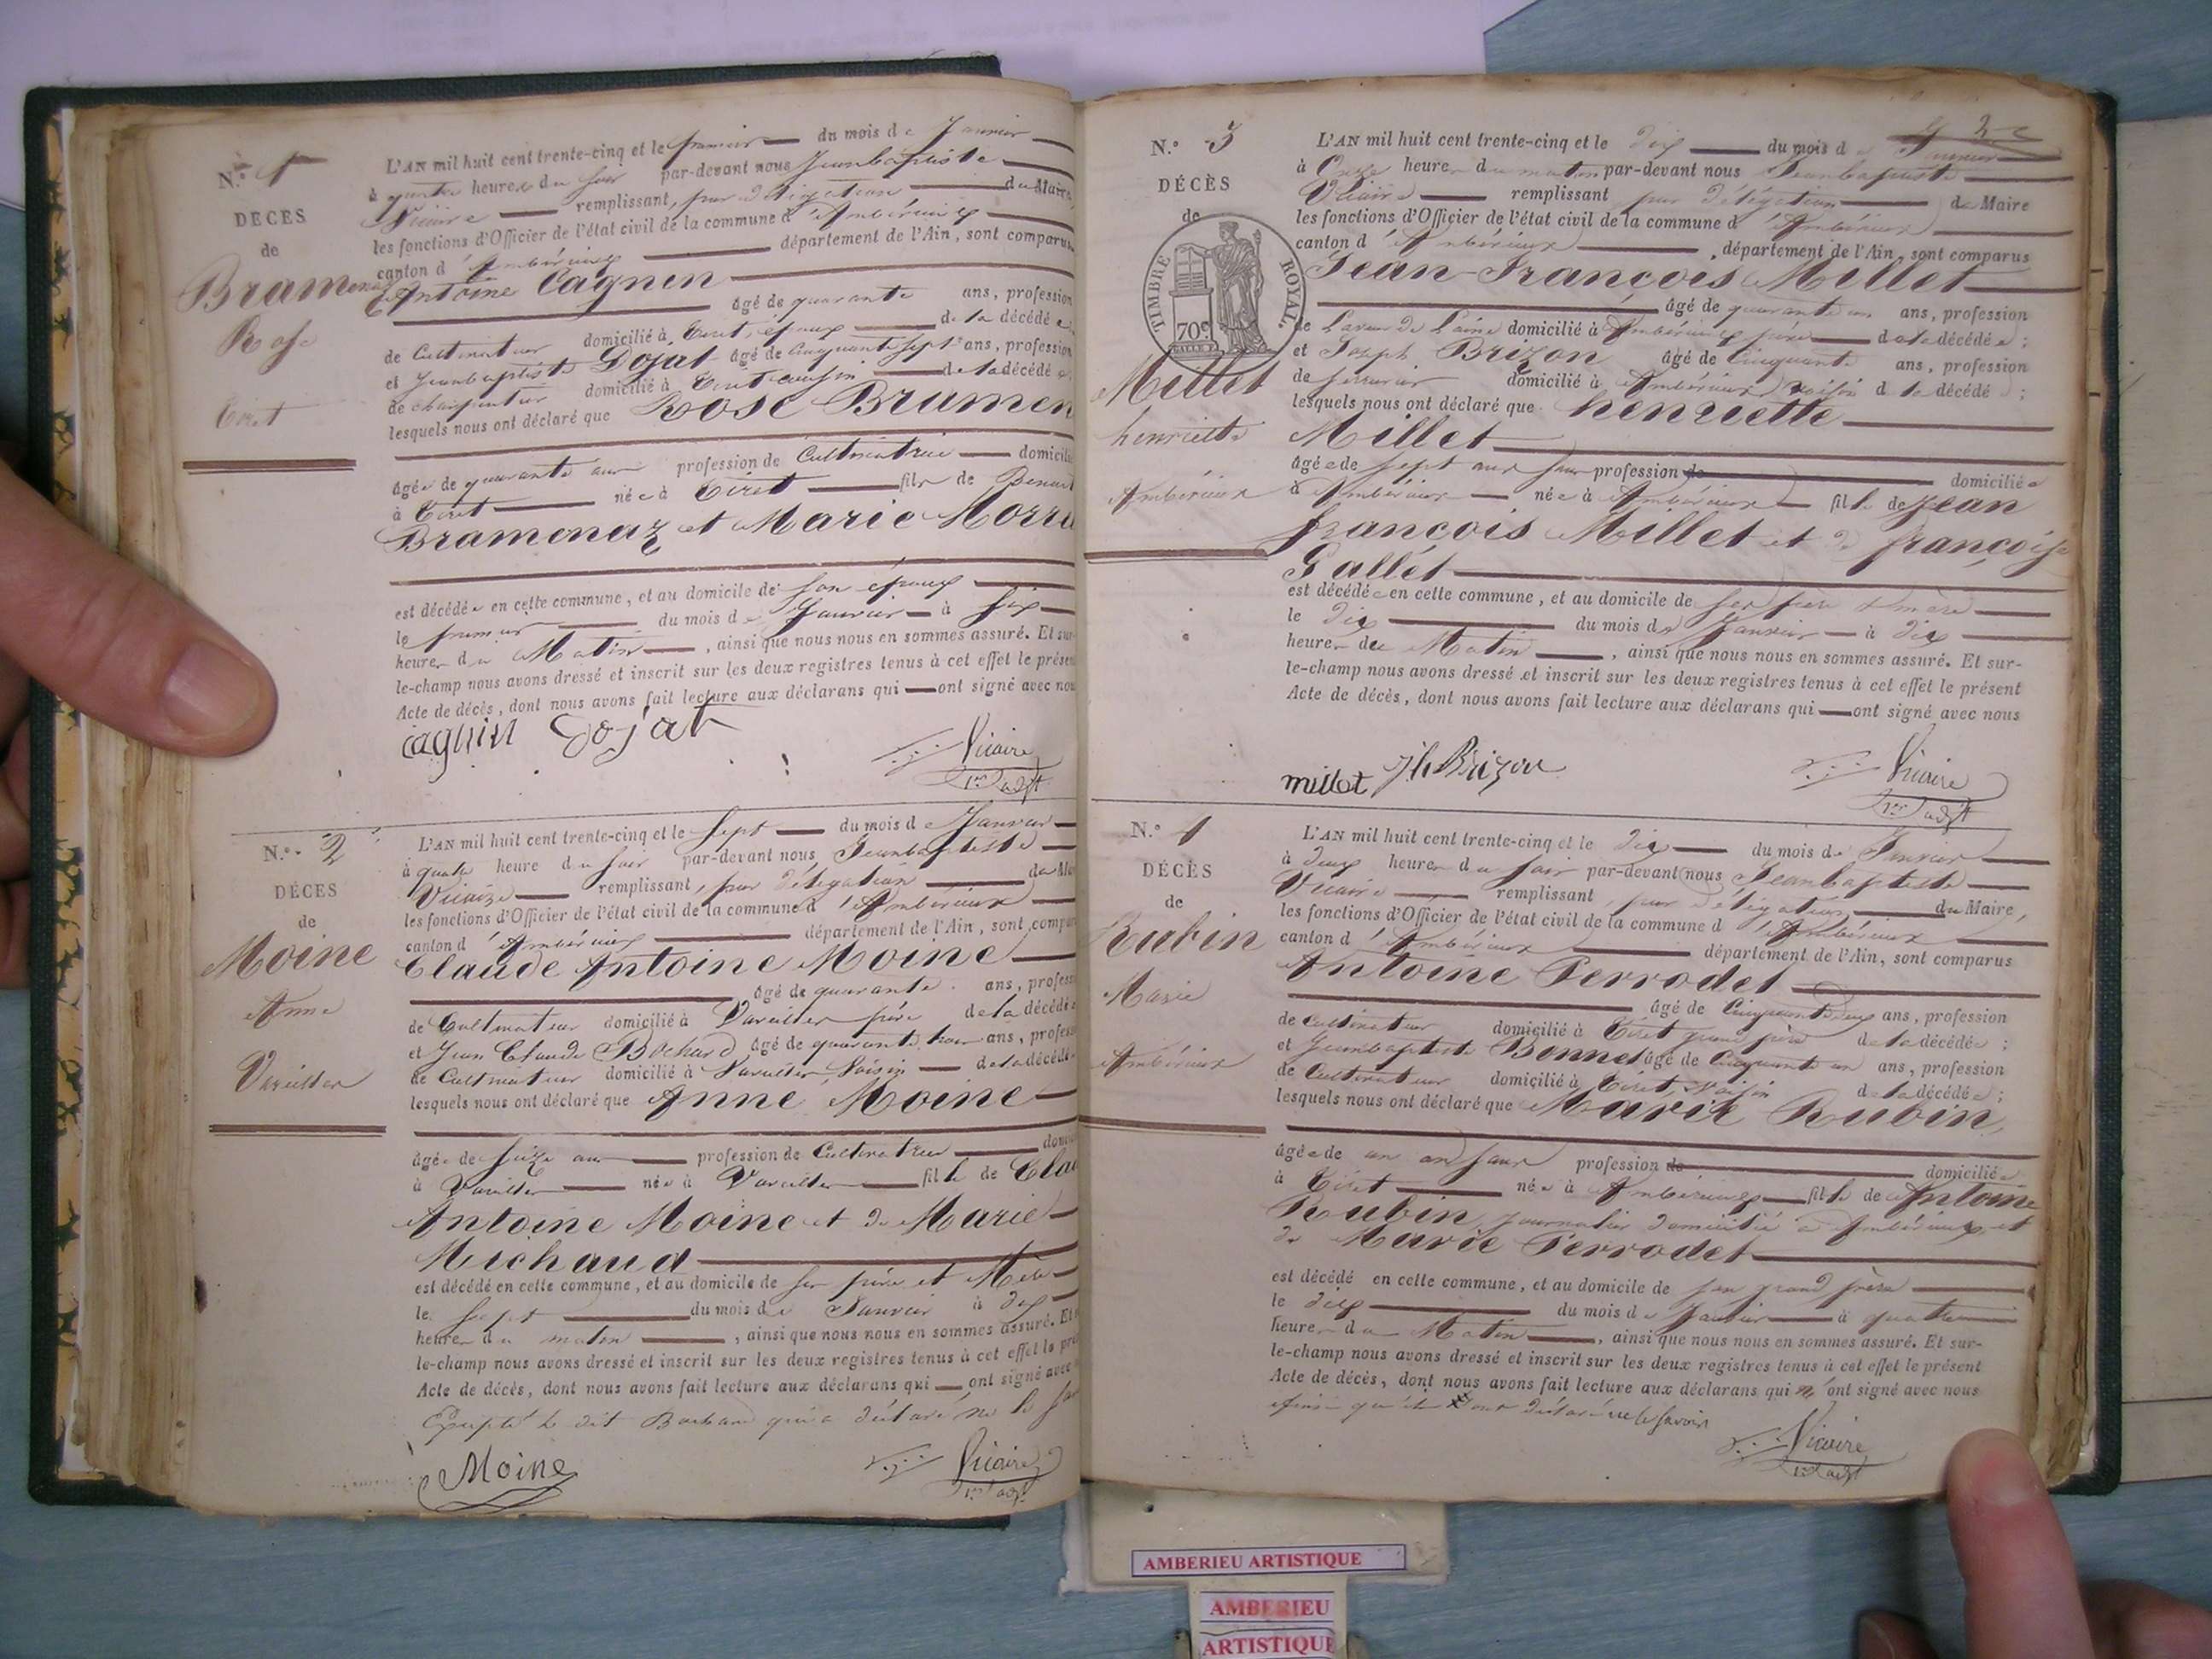 N.° 1
DÉCÈS
de
Bramenaz
Rose
Tiret
L'AN mil huit cent trente-cinq et le premier du mois de Janvier
à quatre heures du soir par-devant nous Jeanbaptiste
Vicaire remplissant, par délégation du Maire,
les fonctions d'Officier de l'état civil de la commune d'Ambérieux
canton d'Ambérieux département de l'Ain, sont comparus
Antoine Cagnin
âgé de quarante ans, profession
de Cultivateur domicilié à Tiret, époux de la décédée
et Jeanbaptiste Dojat âgé de cinquante sept ans, profession
de charpentier domicilié à Tiret cousin de la décédée
lesquels nous ont déclaré que Rose Bramen
âgée de quarante ans profession de Cultivatrice domicilié
à Tiret née à Tiret fille de Benoit
Bramenaz et Marie
est décédée en cette commune, et au domicile de son époux
le premier du mois de Janvier à six
heures du Matin, ainsi que nous nous en sommes assuré. Et sur-
le-champ nous avons dressé et inscrit sur les deux registres tenus à cet effet le présent
Acte de décès, dont nous avons fait lecture aux déclarans qui ont signé avec nous
cagnin Dojat Vicaire
1er adjt
N.° 2
DÉCES
de
Moine
Anne
Vareilles
L'AN mil huit cent trente-cinq et le sept du mois de Janvier
à quatre heure du soir par-devant nous Jeanbaptiste
Vicaire remplissant, par délégation du Maire
les fonctions d'Officier de l'état civil de la commune d'Ambérieux
canton d'Ambérieux département de l'Ain, sont comparus
Claude Antoine Moine
âgé de quarante ans, profession
de Cultivateur domicilié à Vareilles père de la décédée
et Jean Claude Bochard âgé de quarante trois ans, profession
de Cultivateur domicilié à Vareilles, Voisin de la décédée
lesquels nous ont déclaré que Anne Moine
âgée de seize ans profession de Cultivatrice domi
à Vareilles née à Vareilles fille de Clau
Antoine Moine et de Marie
Michaud
est décédé en cette commune, et au domicile de ses père et Mère
le sept du mois de Janvier à dix
heures du matin, ainsi que nous nous en sommes assuré. Et
le-champ nous avons dressé et inscrit sur les deux registres tenus à cet effet le pré
Acte de décès, dont nous avons fait lecture aux déclarans qui ont signé avec
Excepté le dit Bochard qui a déclaré ne le
Moine Vicaire
1er adjt
N.° 3
DÉCÈS
de
TIMBRE ROYAL.
70c
Millet
henriette
Ambérieux
L'AN mil huit cent trente-cinq et le dix du mois de Janvier
à Onze heure du matin par-devant nous Jeanbaptiste
Vicaire remplissant par délégation du Maire
les fonctions d'Officier de l'état civil de la commune d'Ambérieux
canton d'Ambérieux, département de l'Ain, sont comparus
Jean-François Millet
âgé de quarante un ans, profession
de Laveur de Laine domicilié à Ambérieux père de la décédée;
et Joseph Brizon âgé de Cinquante ans, profession
de serrurier domicilié à Ambérieux, voisin d la décédé;
lesquels nous ont déclaré que henriette
Millet
âgée de sept ans sans profession de domiciliée
à Ambérieux née à Ambérieux fille de Jean
françois Millet et de françoise
Gallét
est décédée en cette commune, et au domicile de ses père & mère
le dix du mois de Janvier à dix
heures du Matin, ainsi que nous nous en sommes assuré. Et sur-
le-champ nous avons dressé et inscrit sur les deux registres tenus à cet effet le présent
Acte de décès, dont nous avons fait lecture aux déclarans qui ont signé avec nous
millet Jh Brizon Vicaire
1er adjt
N.°
DÉCÈS
de
Rubin
Marie
Ambérieux
L'AN mil huit cent trente-cinq et le dix du mois de Janvier
à deux heures du soir par-devant nous Jeanbaptiste
Vicaire remplissant, par délégation du Maire,
les fonctions d'Officier de l'état civil de la commune d'Ambérieux
canton d'Ambérieux département de l'Ain, sont comparus
Antoine Perrodet
âgé de Cinquante deux ans, profession
de Cultivateur domicilié à Tiret grand père de la décédée;
et Jeanbaptiste Bonnet âgé de Cinquante un ans, profession
de Cultivateur domicilié à Tiret, voisin de la décédée;
lesquels nous ont déclaré que Marie Rubin,
âgée de un an sans profession de domiciliée
à Tiret née à Ambérieux fille de Antoine
Rubin, journalier domicilié à Ambérieux et
de Marie Perrodet
est décédé en cette commune, et au domicile de son grand père
le dix du mois de Janvier à quatre
heures du Matin, ainsi que nous nous en sommes assuré. Et sur-
le-champ nous avons dressé et inscrit sur les deux registres tenus à cet effet le présent
Acte de décès, dont nous avons fait lecture aux déclarans qui n'ont signé avec nous
ont déclaré ne le savoir
Vicaire
1er adjt
AMBERIEU ARTISTIQUE
AMBERIEU
ARTISTIQUE